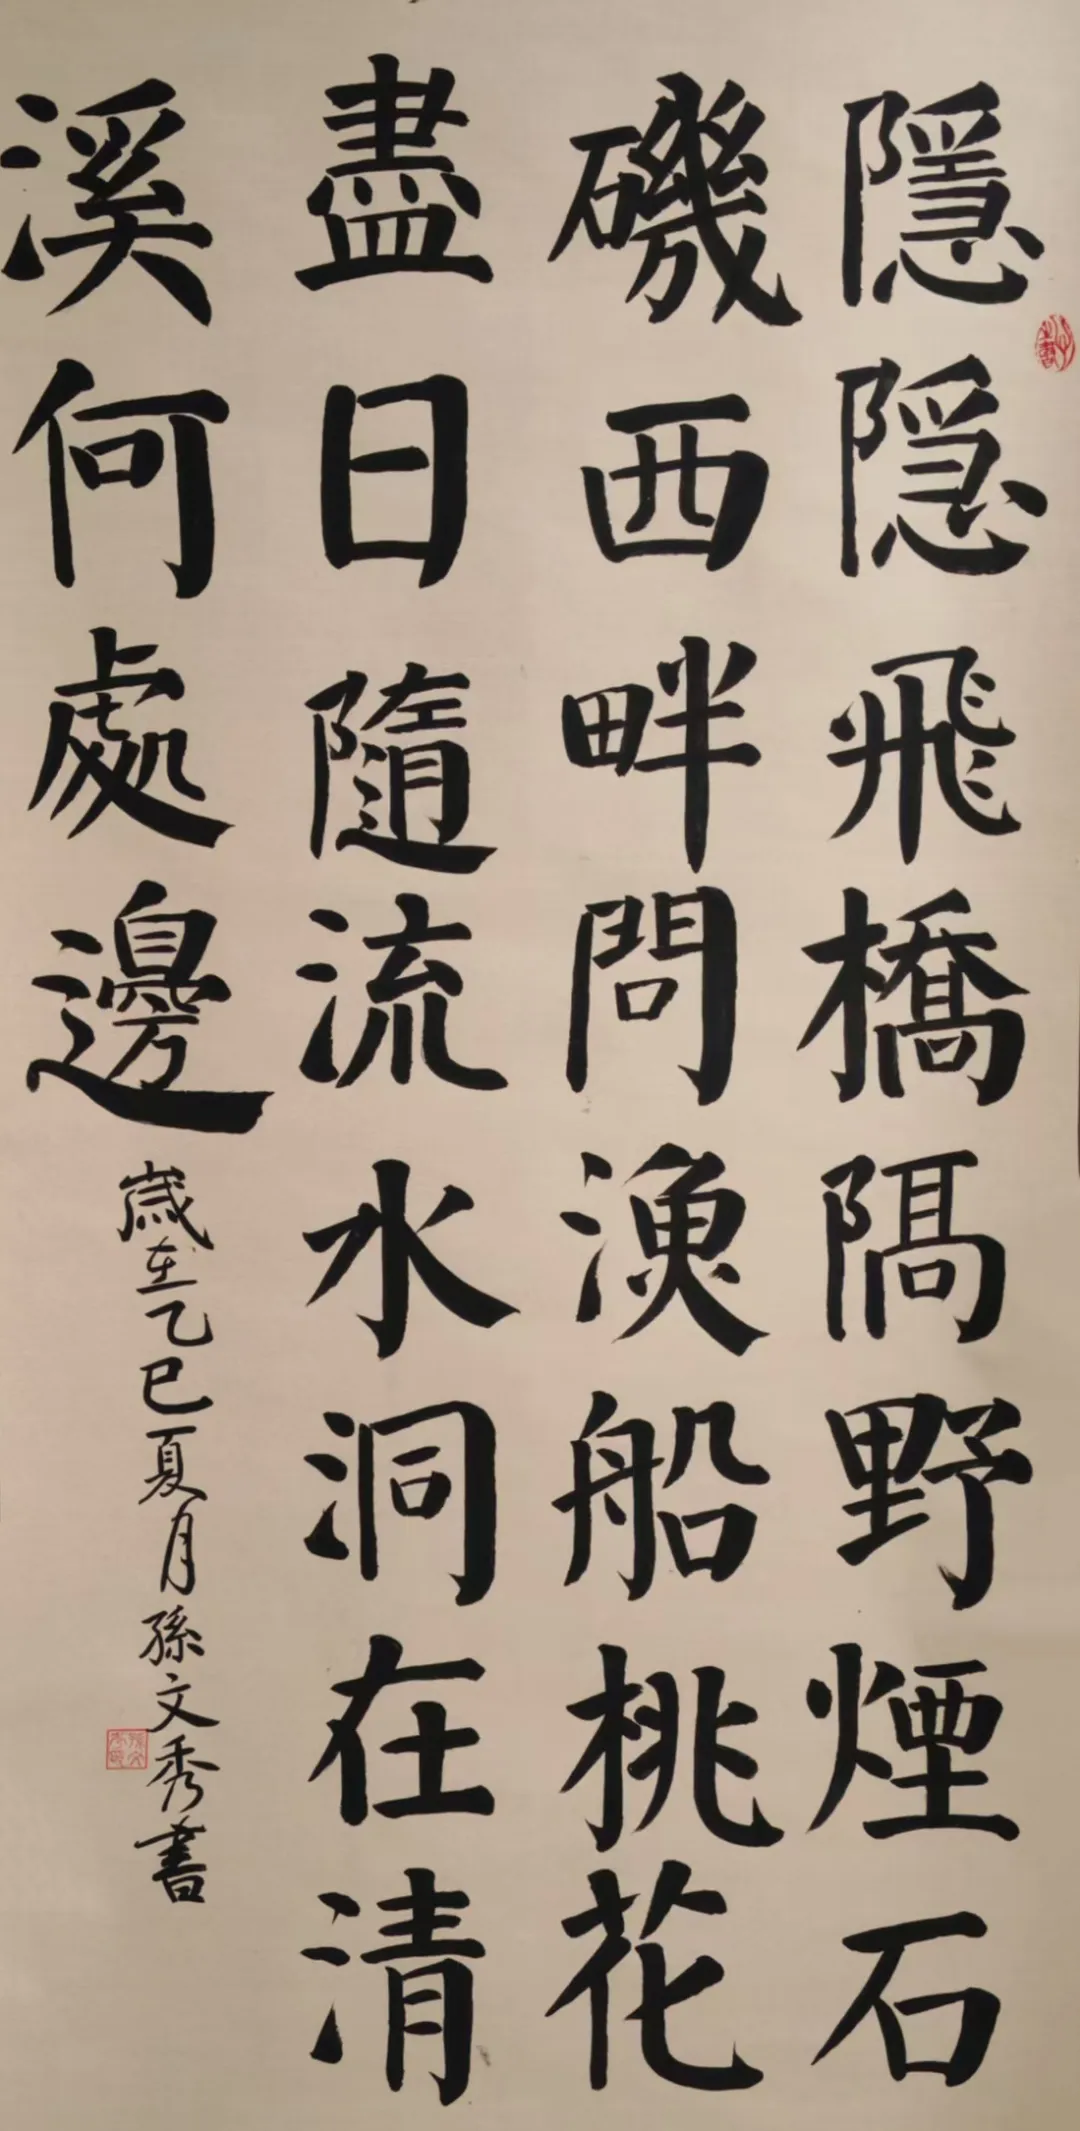 隱隱飛橋隔野煙石
磯西畔問漁船桃花
盡日隨流水洞在清
溪何處邊
歲在乙巳夏月孫文秀書